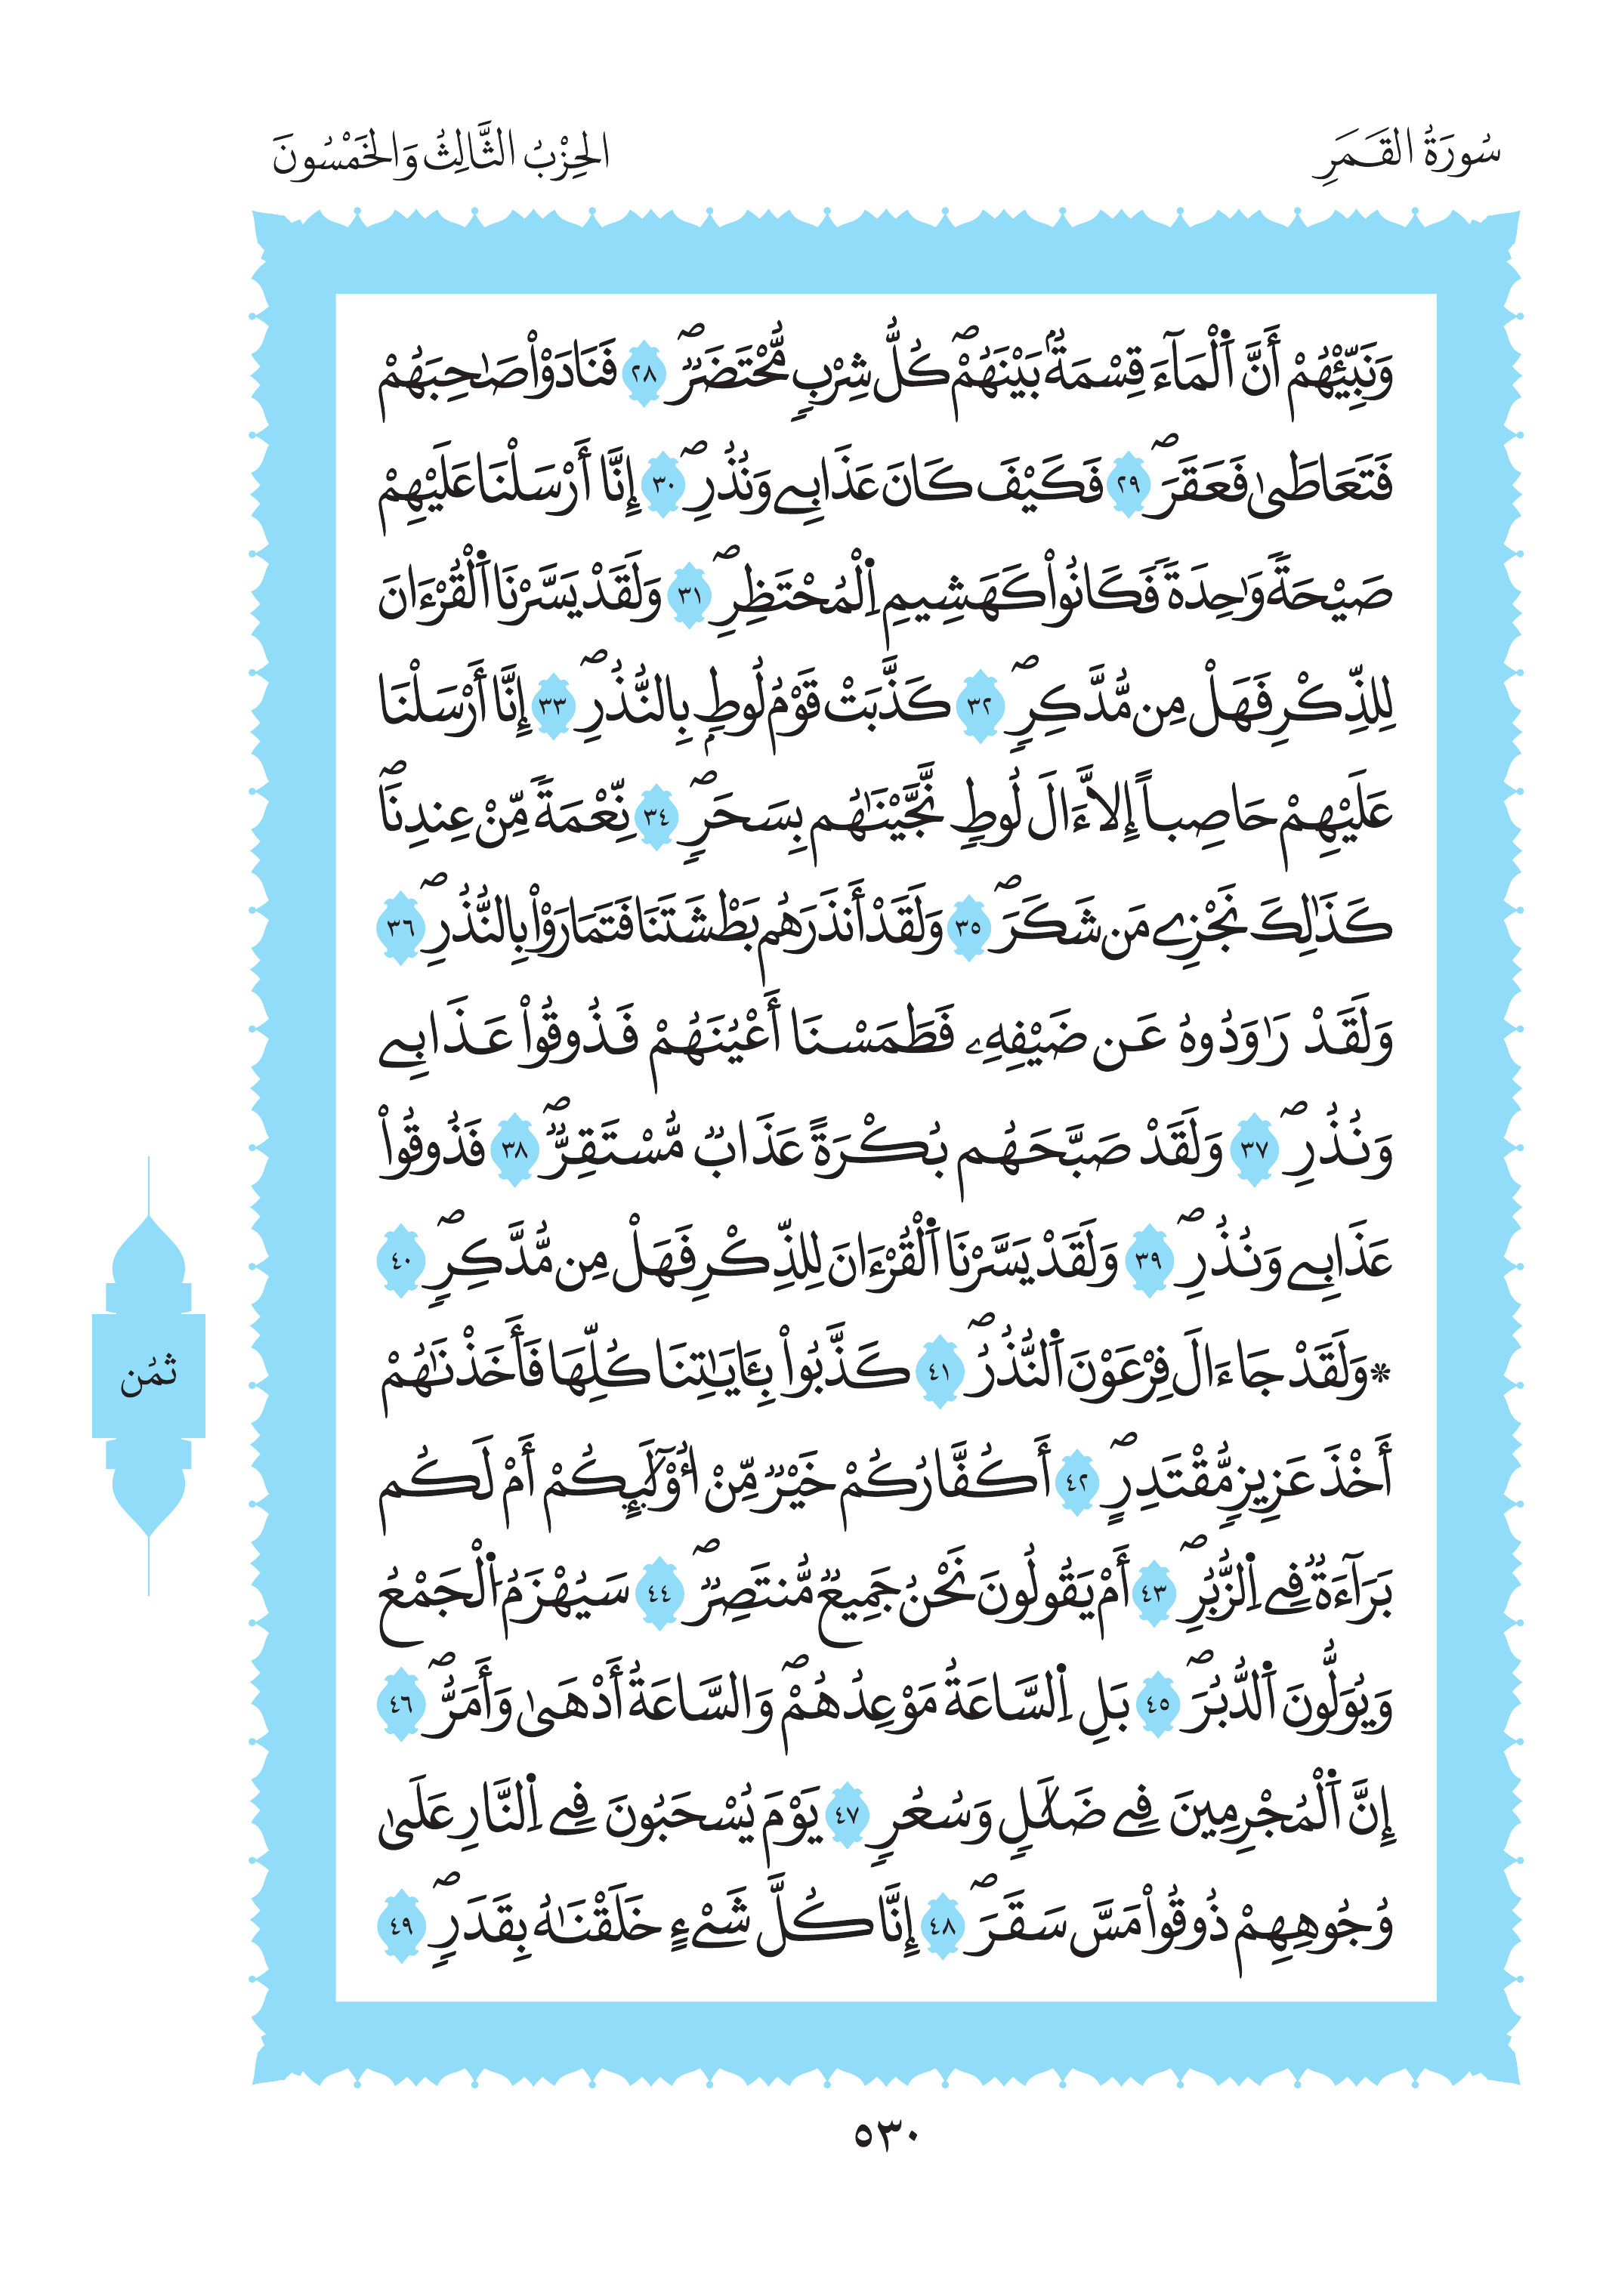 سُورَةُ القَمَرِ
الحِزْبُ الثَّالِثُ وَالخَمْسُونَ
وَنَبِّئْهُمْ أَنَّ اَ۬لْمَآءَ قِسْمَةُۢ بَيْنَهُمْۖ كُلُّ شِرْبٖ مُّحْتَضَرٞۖ ٢٨ فَنَادَوْاْ صَٰحِبَهُمْ
فَتَعَاطَىٰ فَعَقَرَۖ ٢٩ فَكَيْفَ كَانَ عَذَابِے وَنُذُرِۖ ٣٠ إِنَّا أَرْسَلْنَا عَلَيْهِمْ
صَيْحَةٗ وَٰحِدَةٗ فَكَانُواْ كَهَشِيمِ اِ۬لْمُحْتَظِرِۖ ٣١ وَلَقَدْ يَسَّرْنَا اَ۬لْقُرْءَانَ
لِلذِّكْرِ فَهَلْ مِن مُّدَّكِرٖۖ ٣٢ كَذَّبَتْ قَوْمُ لُوطِۢ بِالنُّذُرِۖ ٣٣ إِنَّا أَرْسَلْنَا
عَلَيْهِمْ حَاصِباً إِلَّا ءَالَ لُوطٖ نَّجَّيْنَٰهُم بِسَحَرٖۖ ٣٤ نِّعْمَةٗ مِّنْ عِندِنَاۖ
كَذَٰلِكَ نَجْزِے مَن شَكَرَۖ ٣٥ وَلَقَدْ أَنذَرَهُم بَطْشَتَنَا فَتَمَارَوْاْ بِالنُّذُرِۖ ٣٦
وَلَقَدْ رَٰوَدُوهُ عَن ضَيْفِهِۦ فَطَمَسْنَا أَعْيُنَهُمْ فَذُوقُواْ عَذَابِے
وَنُذُرِۖ ٣٧ وَلَقَدْ صَبَّحَهُم بُكْرَةً عَذَابٞ مُّسْتَقِرّٞۖ ٣٨ فَذُوقُواْ
عَذَابِے وَنُذُرِۖ ٣٩ وَلَقَدْ يَسَّرْنَا اَ۬لْقُرْءَانَ لِلذِّكْرِ فَهَلْ مِن مُّدَّكِرٖۖ ٤٠
۞وَلَقَدْ جَاءَ الَ فِرْعَوْنَ اَ۬لنُّذُرُۖ ٤١ كَذَّبُواْ بِـَٔايَٰتِنَا كُلِّهَا فَأَخَذْنَٰهُمْ
أَخْذَ عَزِيزٖ مُّقْتَدِرٍۖ ٤٢ أَكُفَّارُكُمْ خَيْرٞ مِّنْ أُوْلَٰٓئِكُمْ أَمْ لَكُم
بَرَآءَةٞ فِے اِ۬لزُّبُرِۖ ٤٣ أَمْ يَقُولُونَ نَحْنُ جَمِيعٞ مُّنتَصِرٞۖ ٤٤ سَيُهْزَمُ اُ۬لْجَمْعُ
وَيُوَلُّونَ اَ۬لدُّبُرَۖ ٤٥ بَلِ اِ۬لسَّاعَةُ مَوْعِدُهُمْۖ وَالسَّاعَةُ أَدْهَىٰ وَأَمَرُّۖ ٤٦
إِنَّ اَ۬لْمُجْرِمِينَ فِے ضَلَٰلٖ وَسُعُرٖ ٤٧ يَوْمَ يُسْحَبُونَ فِے اِ۬لنَّارِ عَلَىٰ
وُجُوهِهِمْ ذُوقُواْ مَسَّ سَقَرَۖ ٤٨ إِنَّا كُلَّ شَےْءٍ خَلَقْنَٰهُ بِقَدَرٖۖ ٤٩
ثُمُن
٥٣٠